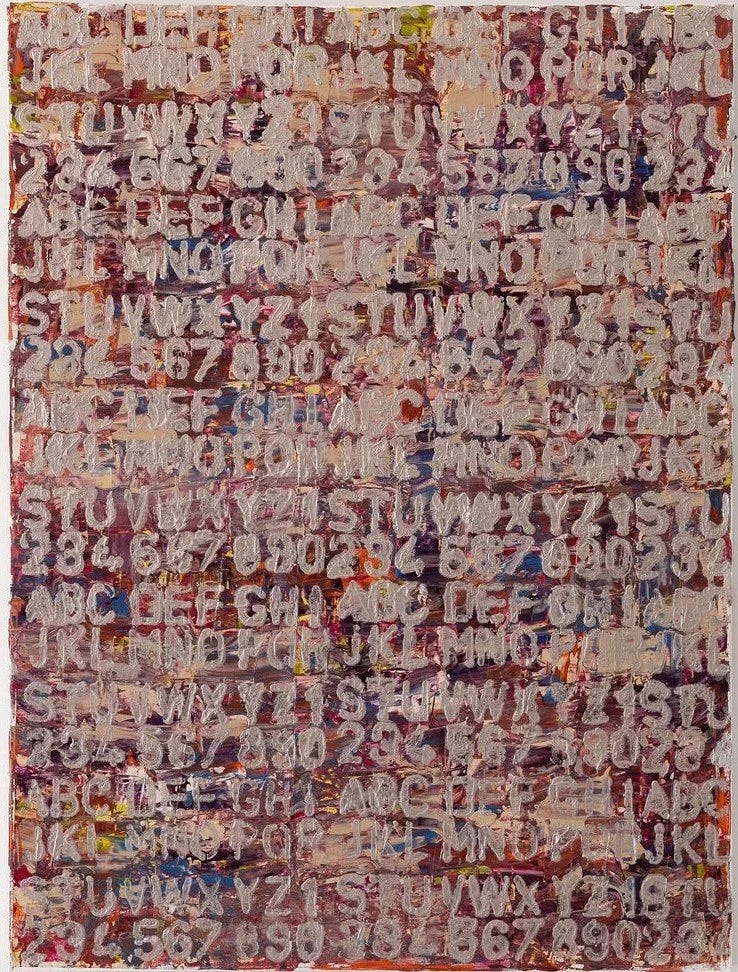 ABC DEF GHI ABC DEF GHI ABC
JKL MNO PQR JKL MNO PQR JKL
STU VWX YZ1 STU VWX YZ1 STU
234 567 890 234 567 890 234
ABC DEF GHI ABC DEF GHI ABC
JKL MNO PQR JKL MNO PQR JKL
STU VWX YZ1 STU VWX YZ1 STU
234 567 890 234 567 890 234
ABC DEF GHI ABC DEF GHI ABC
JKL MNO PQR JKL MNO PQR JKL
STU VWX YZ1 STU VWX YZ1 STU
234 567 890 234 567 890 234
ABC DEF GHI ABC DEF GHI ABC
JKL MNO PQR JKL MNO PQR JKL
STU VWX YZ1 STU VWX YZ1 STU
234 567 890 234 567 890 234
ABC DEF GHI ABC DEF GHI ABC
JKL MNO PQR JKL MNO PQR JKL
STU VWX YZ1 STU VWX YZ1 STU
234 567 890 234 567 890 234